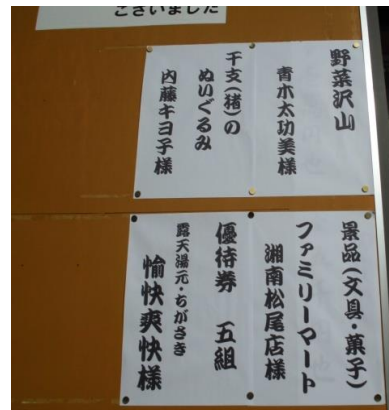 ございました
野菜沢山
青木太功美様
干支(猪)の
ぬいぐるみ
内藤キヨ子様
景品(文具・菓子)
ファミリーマート
湘南松尾店様
優待券 五組
露天湯元・ちがさき
愉快爽快様